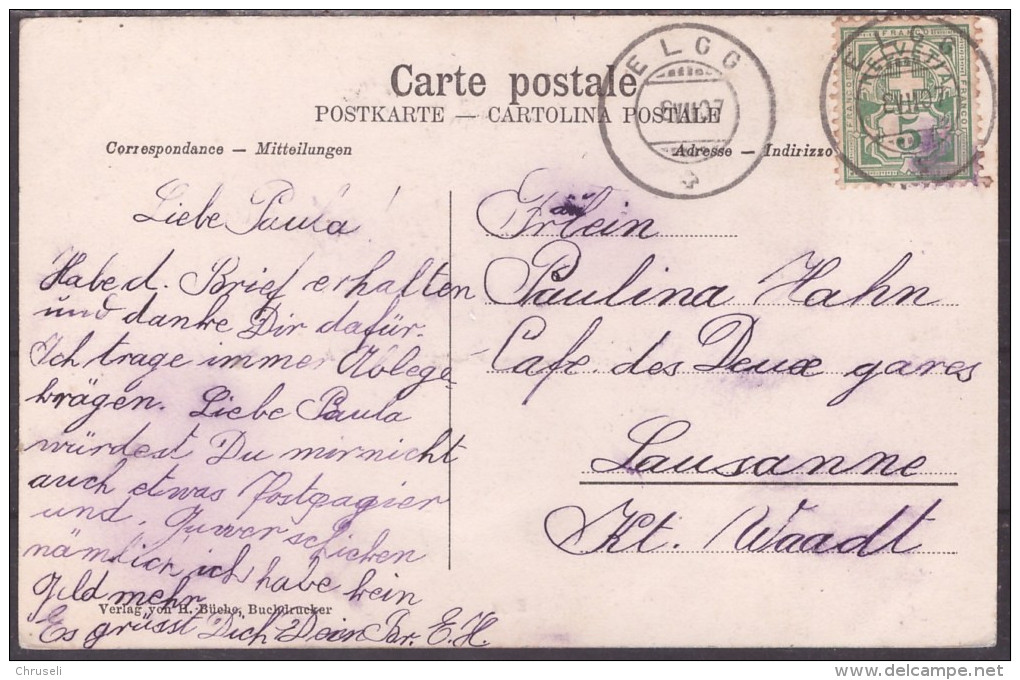 Carte postale
POSTKARTE — CARTOLINA POSTALE
Correspondance — Mitteilungen
Adresse — Indirizzo
ELGG
8.VIII.07
ELGG
FRANCO
HELVETIA
FRANCO
FRANCO
5
Liebe Paula!
Habe d. Brief erhalten
und danke Dir dafür.
Ich trage immer Ablege-
krägen. Liebe Paula
würdest Du mir nicht
auch etwas Postpapier
und, schicken
nämlich ich habe kein
Geld mehr
Es grüsst Dich Dein Br. E. H.
Frlein
Paulina Hahn
Cafe des Deux gares
Lausanne
Kt. Waadt
Verlag von H. Büche, Buchdrucker
Chruseli
delcampe.net